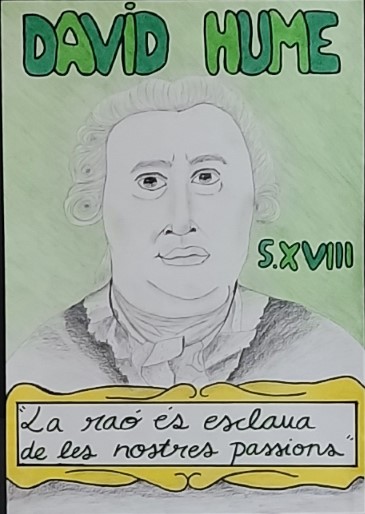 DAVID HUME
S.XVIII
"La raó és esclava
de les nostres passions"